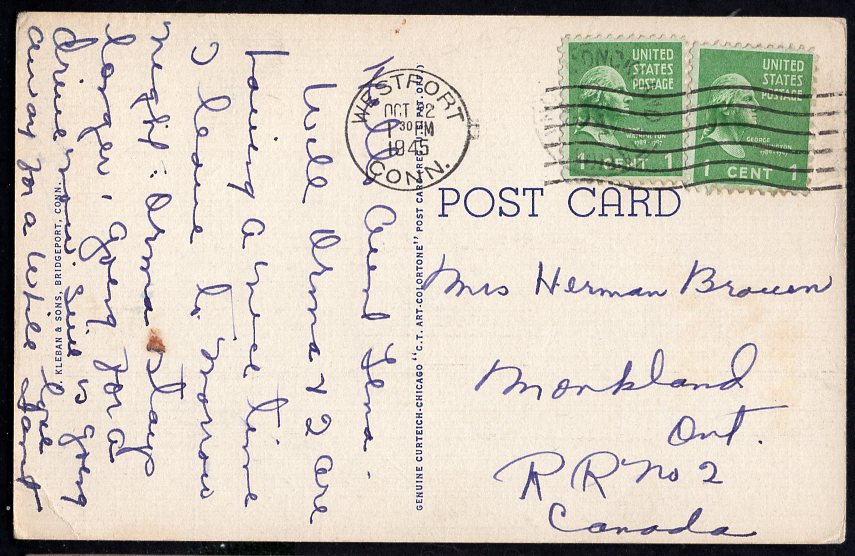 Hello Aunt Lena -
Well Orma & I are
having a nice time
I leave to morrow
night. Orma stays
longer, going for a
drive now, Susie is going
away for a while
WESTPORT
OCT 22
1 30 PM
1945
CONN.
UNITED
STATES
POSTAGE
WASHINGTON
1 CENT 1
UNITED
STATES
POSTAGE
GEORGE
WASHINGTON
1 CENT 1
POST CARD
Mrs Herman Brown
Monkland
Ont.
R R No 2
Canada
GENUINE CURTEICH-CHICAGO "C.T. ART-COLORTONE" POST CARD (REG. U.S. PAT. OFF.)
KLEBAN & SONS, BRIDGEPORT, CONN.